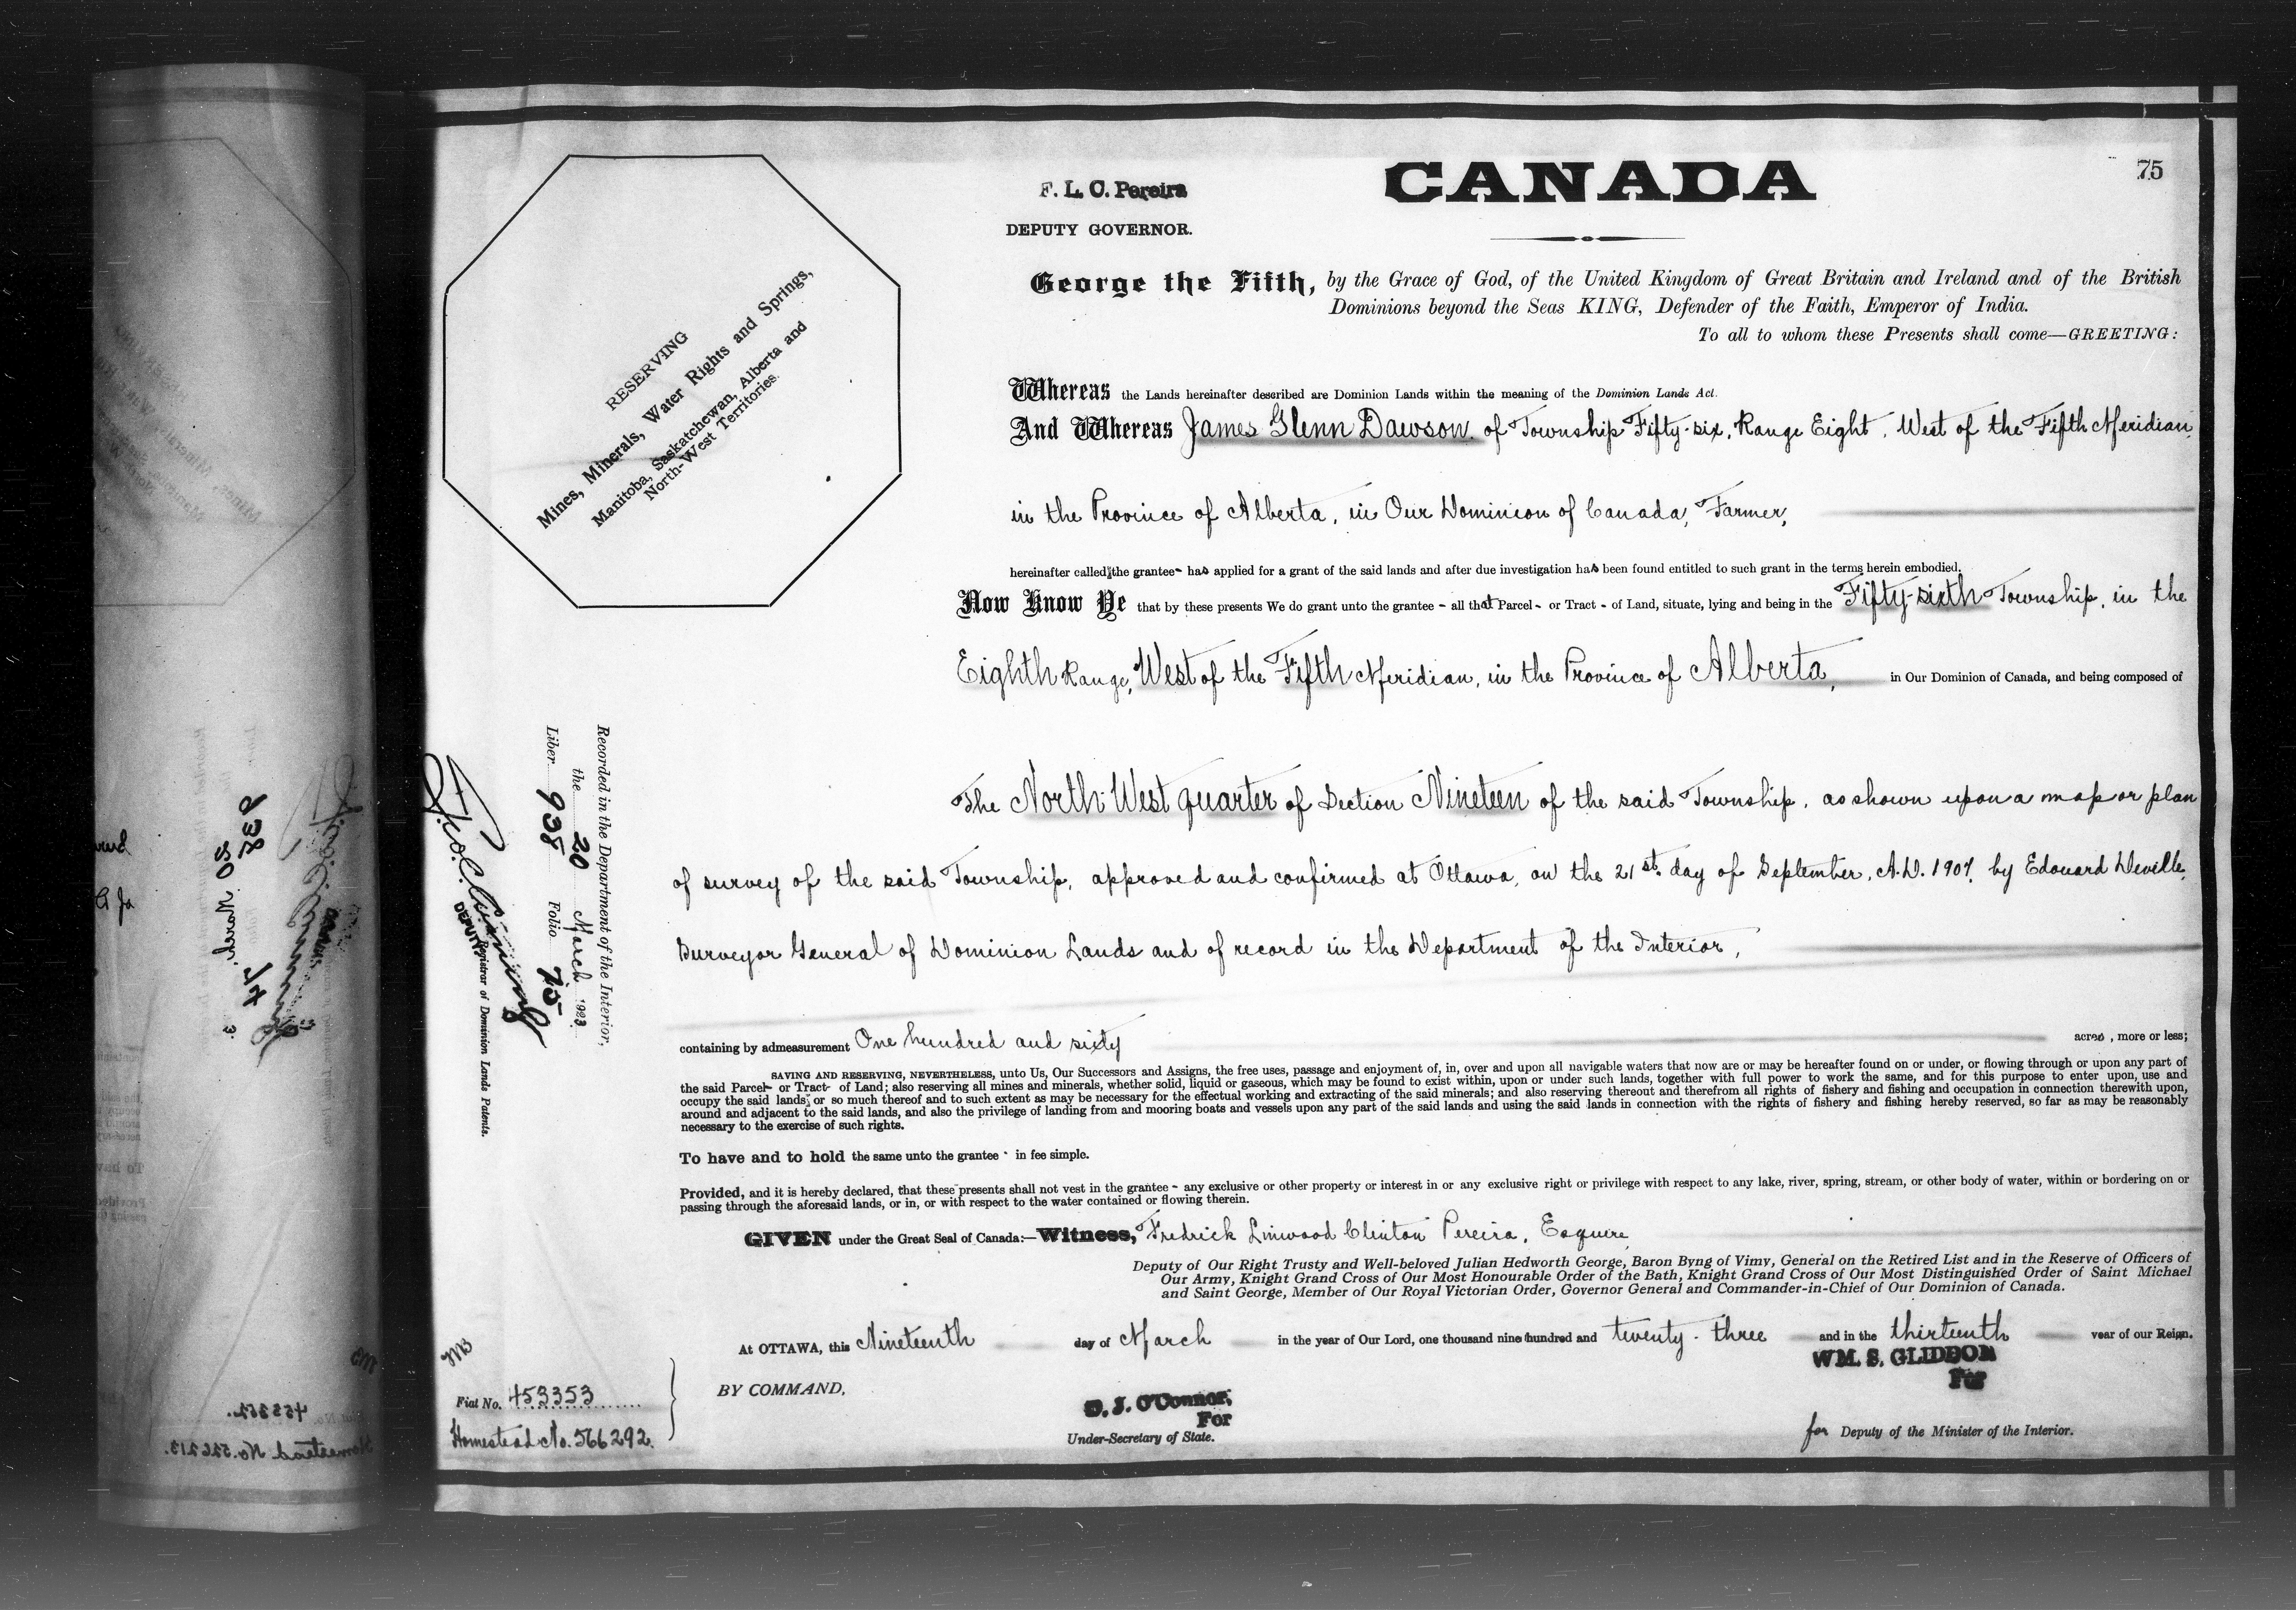 75
CANADA
F. L. C. Pereira
DEPUTY GOVERNOR.
George the Fifth, by the Grace of God, of the United Kingdom of Great Britain and Ireland and of the British
Dominions beyond the Seas KING, Defender of the Faith, Emperor of India.
To all to whom these Presents shall come—GREETING:
RESERVING
Mines, Minerals, Water Rights and Springs,
Manitoba, Saskatchewan, Alberta and
North-West Territories.
Whereas the Lands hereinafter described are Dominion Lands within the meaning of the Dominion Lands Act.
And Whereas James Glenn Dawson, of Township Fifty-six, Range Eight, West of the Fifth Meridian,
in the Province of Alberta, in Our Dominion of Canada, Farmer,
hereinafter called the grantee - has applied for a grant of the said lands and after due investigation has been found entitled to such grant in the terms herein embodied.
Now Know Ye that by these presents We do grant unto the grantee - all that Parcel - or Tract - of Land, situate, lying and being in the Fifty-sixth Township, in the
Eighth Range, West of the Fifth Meridian, in the Province of Alberta, in Our Dominion of Canada, and being composed of
The North-West quarter of Section Nineteen of the said Township, as shown upon a map or plan
of survey of the said Township, approved and confirmed at Ottawa, on the 21st day of September, A.D. 1907, by Edouard Deville,
Surveyor General of Dominion Lands and of record in the Department of the Interior,
containing by admeasurement One hundred and sixty acres, more or less;
SAVING AND RESERVING, NEVERTHELESS, unto Us, Our Successors and Assigns, the free uses, passage and enjoyment of, in, over and upon all navigable waters that now are or may be hereafter found on or under, or flowing through or upon any part of
the said Parcel- or Tract- of Land; also reserving all mines and minerals, whether solid, liquid or gaseous, which may be found to exist within, upon or under such lands, together with full power to work the same, and for this purpose to enter upon, use and
occupy the said lands, or so much thereof and to such extent as may be necessary for the effectual working and extracting of the said minerals; and also reserving thereout and therefrom all rights of fishery and fishing and occupation in connection therewith upon,
around and adjacent to the said lands, and also the privilege of landing from and mooring boats and vessels upon any part of the said lands and using the said lands in connection with the rights of fishery and fishing hereby reserved, so far as may be reasonably
necessary to the exercise of such rights.
To have and to hold the same unto the grantee - in fee simple.
Provided, and it is hereby declared, that these presents shall not vest in the grantee - any exclusive or other property or interest in or any exclusive right or privilege with respect to any lake, river, spring, stream, or other body of water, within or bordering on or
passing through the aforesaid lands, or in, or with respect to the water contained or flowing therein.
GIVEN under the Great Seal of Canada:—Witness, Fredrick Linwood Clinton Pereira, Esquire,
Deputy of Our Right Trusty and Well-beloved Julian Hedworth George, Baron Byng of Vimy, General on the Retired List and in the Reserve of Officers of
Our Army, Knight Grand Cross of Our Most Honourable Order of the Bath, Knight Grand Cross of Our Most Distinguished Order of Saint Michael
and Saint George, Member of Our Royal Victorian Order, Governor General and Commander-in-Chief of Our Dominion of Canada.
At OTTAWA, this Nineteenth day of March in the year of Our Lord, one thousand nine hundred and twenty-three and in the thirteenth year of our Reign.
BY COMMAND,
D. J. O'Connor,
For
Under-Secretary of State.
WM. S. GLIDDON
For
for Deputy of the Minister of the Interior.
Recorded in the Department of the Interior,
the 20 March 1923
Liber 938 Folio 75
DEPUTY Registrar of Dominion Lands Patents.
Fiat No. 453353
Homestead No. 566292.